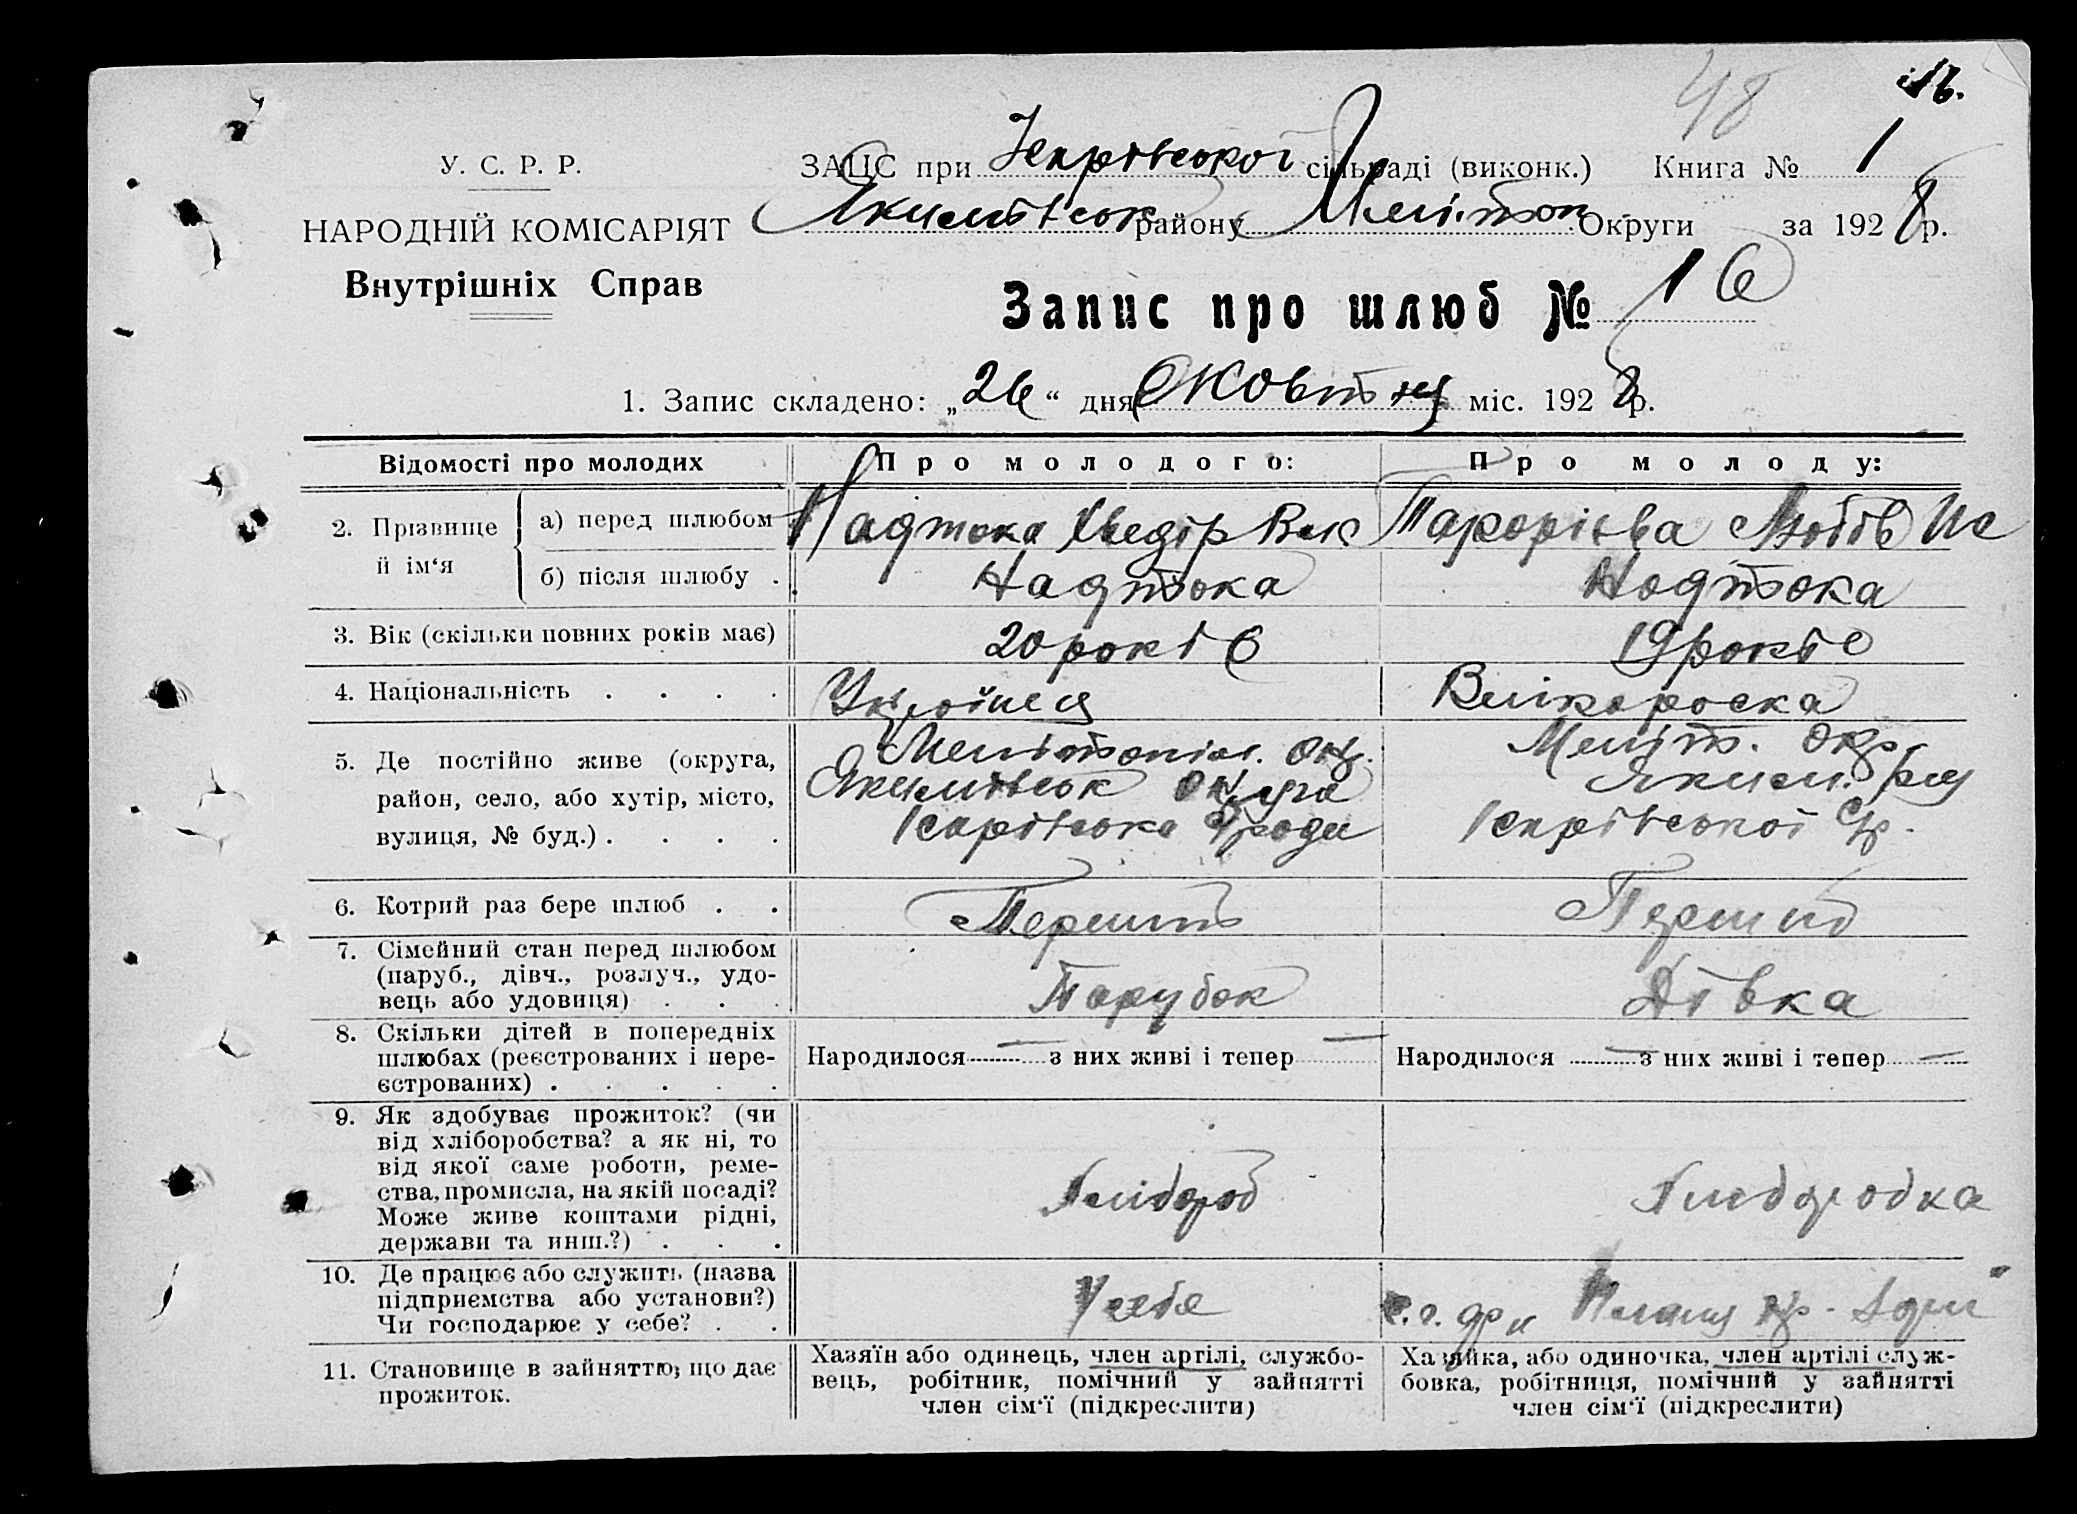 48 16.
У. С. Р. Р.
ЗАЦС при Ікарівської сільраді (виконк.) Книга № 1
НАРОДНІЙ КОМІСАРІЯТ
Якимівськ району Мелітоп Округи за 1928 р.
Внутрішніх Справ
Запис про шлюб № 16
1. Запис складено: „26“ дня Жовтня міс. 1928 р.
Відомості про молодих
Про молодого:
Про молоду:
2. Прізвище й ім‘я
а) перед шлюбом
Надтока Хведір
Любов
б) після шлюбу .
Надтока
Надтока
3. Вік (скільки повних років має)
20 років
19 років
4. Національність . . . .
Українец
Велікороска
5. Де постійно живе (округа,
район, село, або хутір, місто,
вулиця, № буд.) . . . .
Якимівськ округа
Меліт. окр.
Яким. р-ну
6. Котрий раз бере шлюб . .
Перший
Перший
7. Сімейний стан перед шлюбом
(паруб., дівч., розлуч., удо-
вець або удовиця) . . .
Парубок
Дівка
8. Скільки дітей в попередніх
шлюбах (реєстрованих і нере-
єстрованих) . . . . .
Народилося — з них живі і тепер —
Народилося — з них живі і тепер —
9. Як здобуває прожиток? (чи
від хліборобства? а як ні, то
від якої саме роботи, реме-
ства, промисла, на якій посаді?
Може живе коштами рідні,
держави та инш.?) . . .
Хлібороб
Хліборобка
10. Де працює або служить (назва
підприємства або установи?)
Чи господарює у себе? . .
У себя
11. Становище в зайняттю, що дає
прожиток.
Хазяїн або одинець, член артілі, службо-
вець, робітник, помічний у зайнятті
член сім‘ї (підкреслити)
Хазяйка, або одиночка, член артілі служ-
бовка, робітниця, помічний у зайнятті
член сім‘ї (підкреслити)